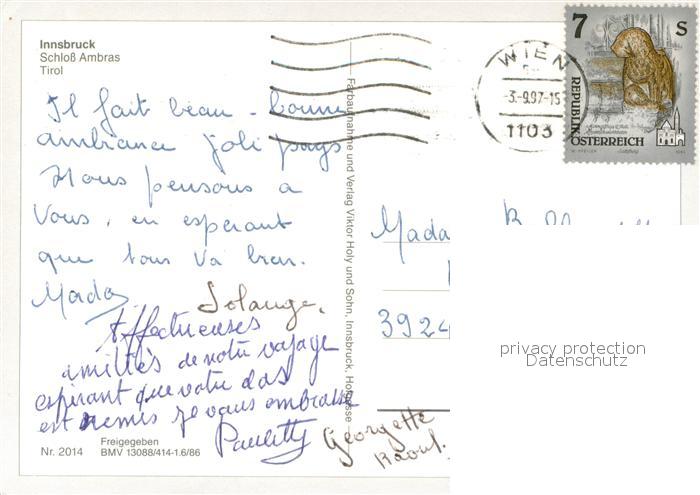 Innsbruck
Schloß Ambras
Tirol
Il fait beau - bonne
ambiance joli pays
Nous pensons a
vous, en esperant
que tous va bien.
Mado Solange.
Affectueuses
amitiés de notre voyage
espérant que votre dos
est remis je vous embrasse
Paulette
Georgette
Raoul.
Nr. 2014
Freigegeben
BMV 13088/414-1.6/86
Farbaufnahme und Verlag Viktor Holy und Sohn, Innsbruck,
WIEN
-3.-9.97-15
1103
7 S
REPUBLIK
ÖSTERREICH
Mada
3924
privacy protection
Datenschutz